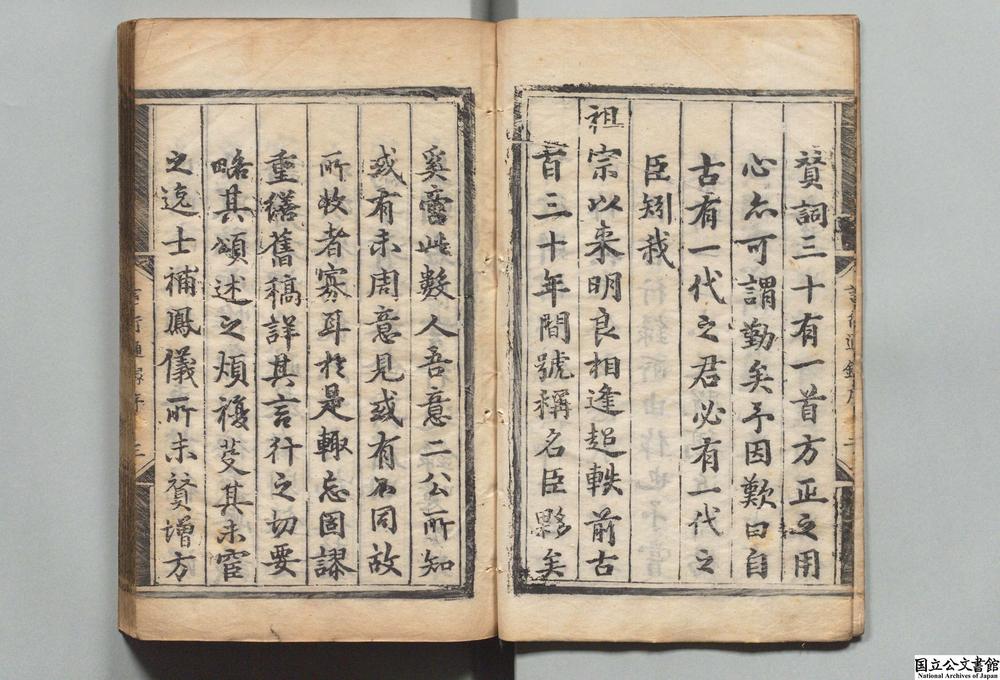 賛詞三十有一首方正之用
心亦可謂勤矣予因歎曰自
古有一代之君必有一代之
臣矧我
祖宗以來明良相逢超軼前古
百三十年間號稱名臣夥矣
奚啻此數人吾意二公所知
或有未周意見或有不同故
所收者寡耳於是輙忘固謬
重繕舊稿詳其言行之切要
略其頌述之煩複芟其未宦
之逸士補鳳儀所未賛增方
国立公文書館
National Archives of Japan